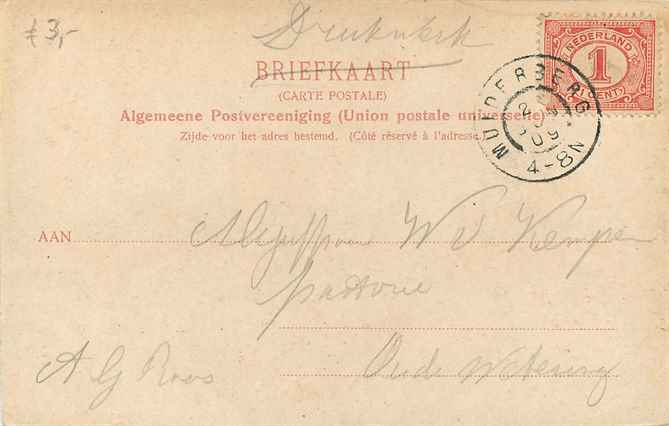 f 3,-
Drukwerk
BRIEFKAART
(CARTE POSTALE)
Algemeene Postvereeniging (Union postale universelle)
Zijde voor het adres bestemd. (Côté réservé à l'adresse.
NEDERLAND
1
1 CENT
MUIDERBERG
09
4-8N
AAN
W V Kempen
pastorie
Oude Wetering
A G Roos